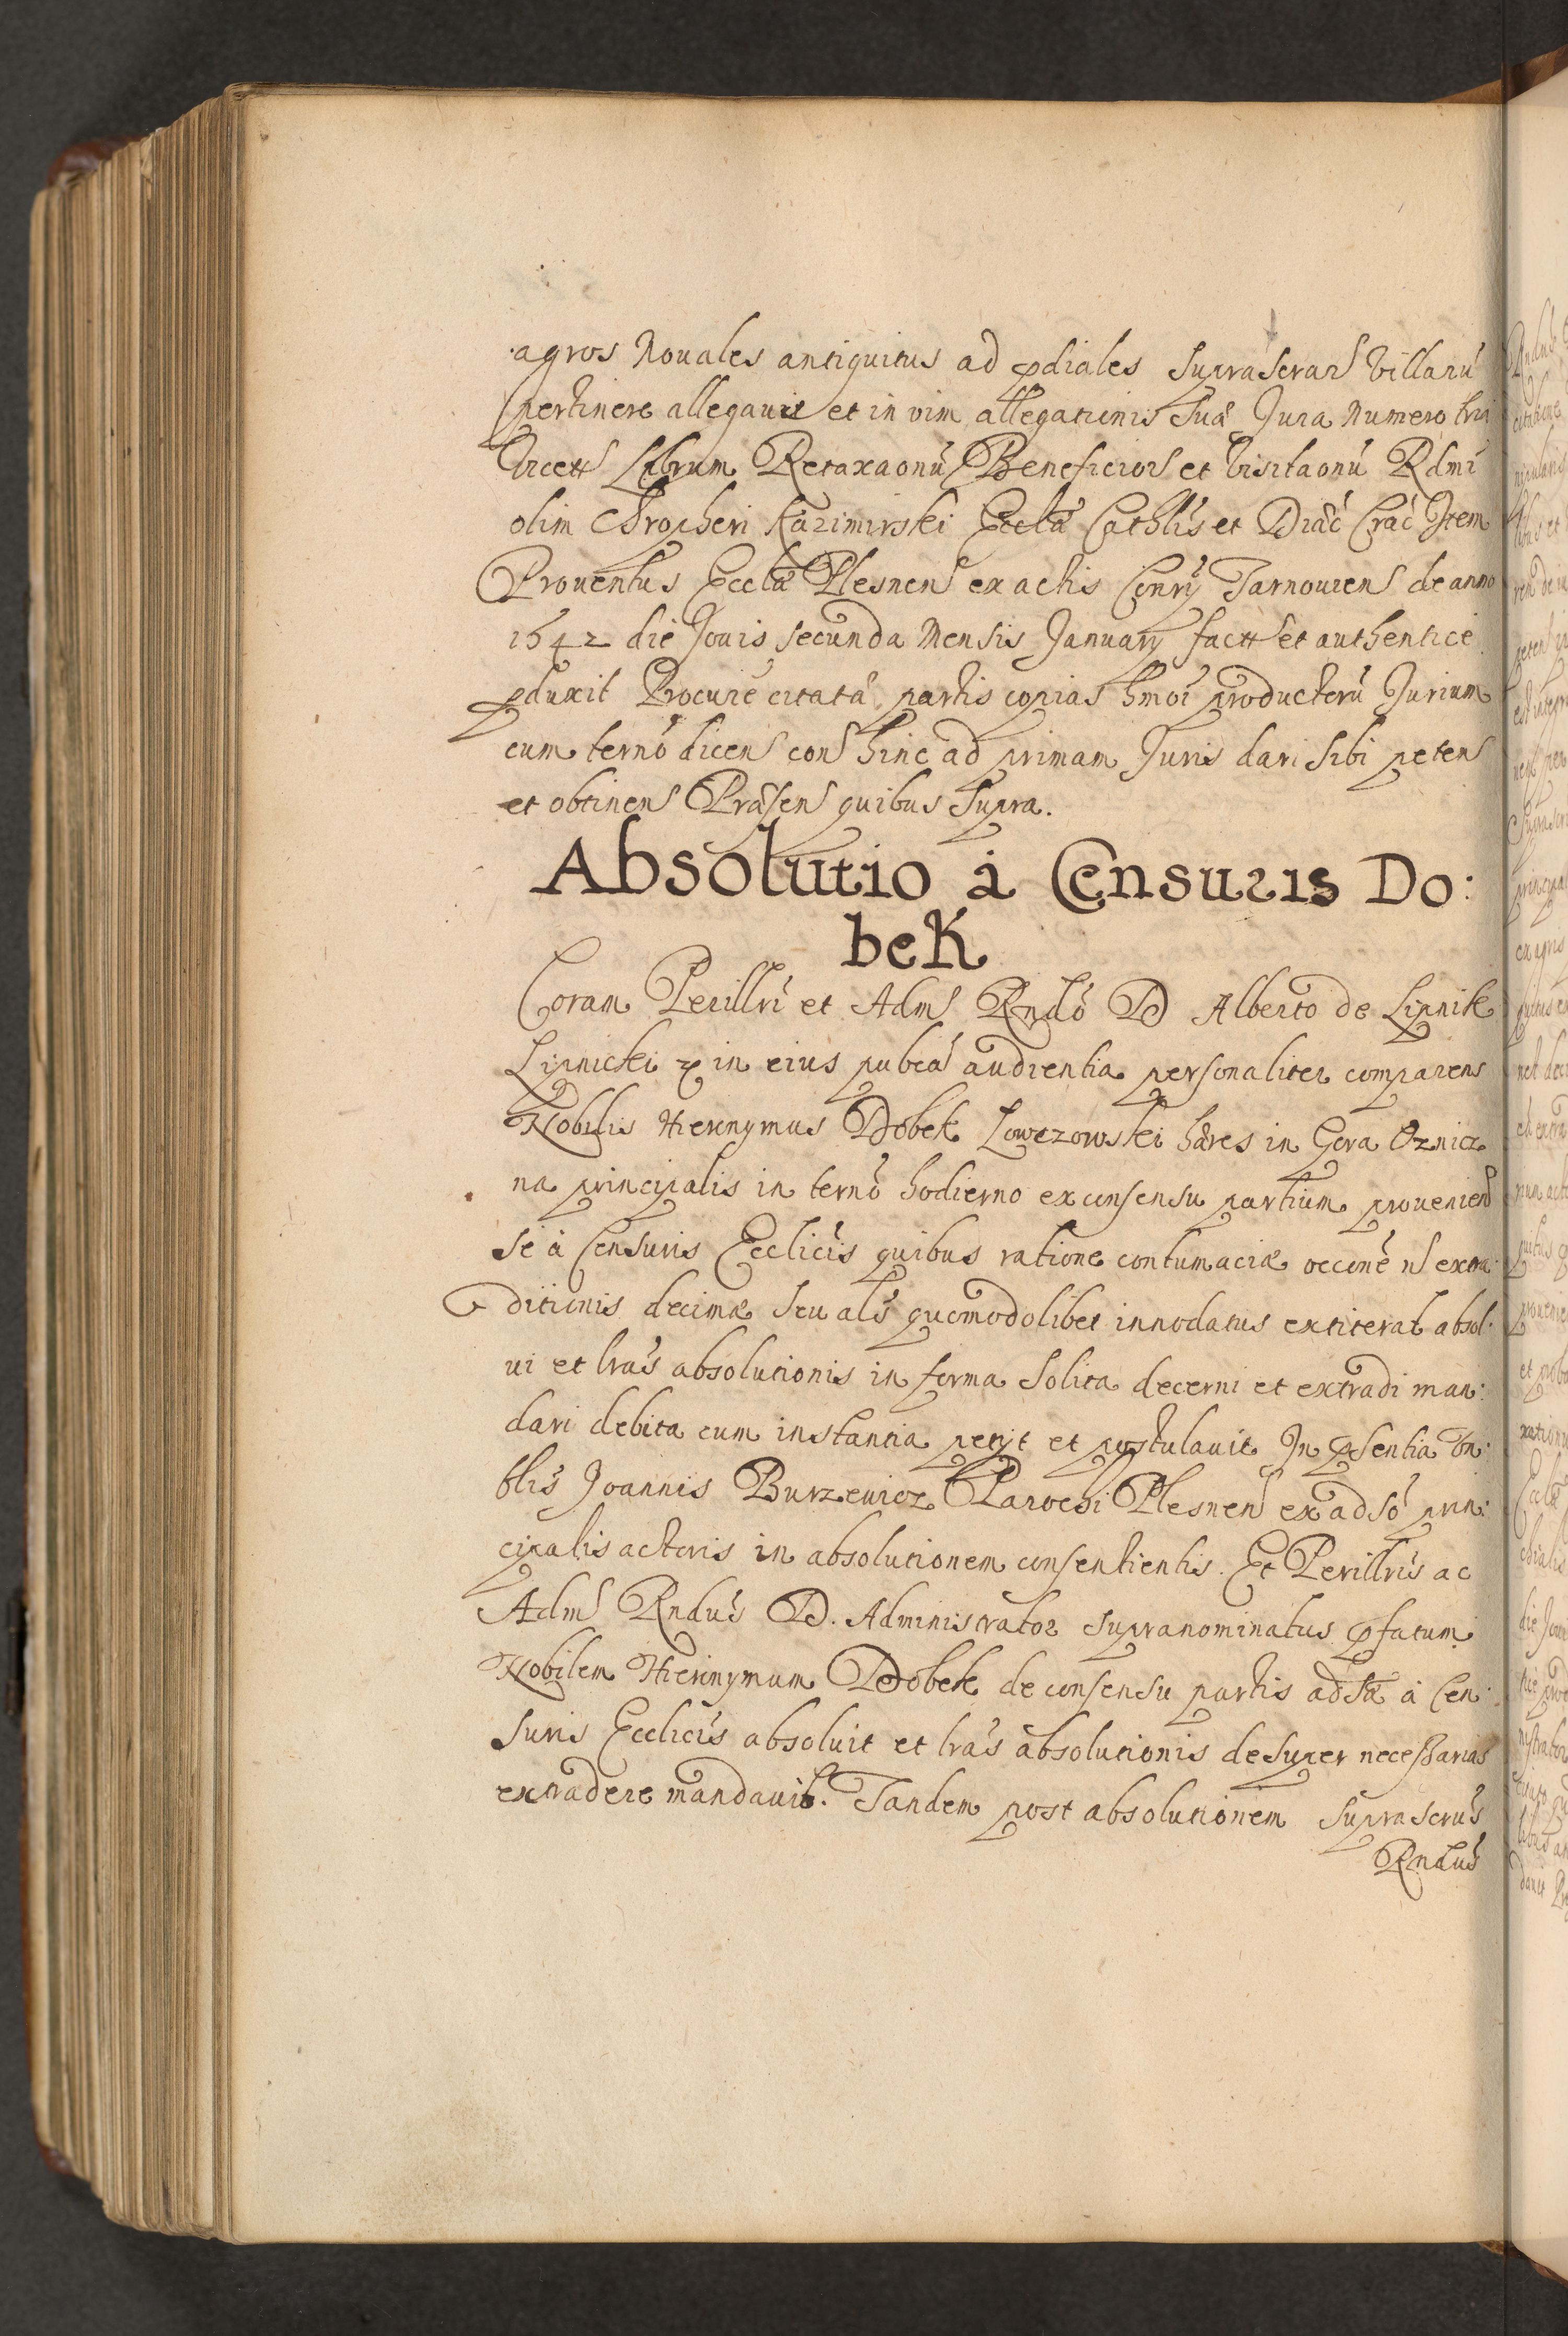 agros Nouales antiquitus ad pdiales suprascrar villarũ
pertinere allegauit et in vim allegationis suæ Jura Numero tria
vidett Librum Retaxaonũ Beneficior et visitaonũ Rdmi
olim Christopheri Kazimirski Ecclæ Cathlis et Diæc Crac Item
Prouentus Ecclæ Plesnen ex actis Conrÿ Tarnouien de anno
1642 die Jouis secunda Mensis January factt et authentice
pduxit Procure citatæ partis copias hmoi productorũ Jurium
cum termo dicen con hinc ad primam Juris dari sibi peten
et obtinen Præsen quibus supra.
Absolutio à Censuris Do:
bek
Coram Perillri et Adm Rndo D Alberto de Lipnik
Lipnicki & in eius pubca audientia personaliter comparens
Nobilis Hieronymus Dobek Lowczowski hæres in Gora
na principalis in termo hodierno ex consensu partium prouenien
se à Censuris Ecclicis quibus ratione contumaciæ occone n extra
ditionis decimæ seu als quomodolibet innodatus extiterat absol:
ui et lras absolutionis in forma solita decerni et extradi man:
dari debita cum instantia petÿt et postulauit In psentia
blis Joannis Burzewicz Parochi Plesnen ex adso prin:
cipalis actoris in absolutionem consentientis. Et Perillris ac
Adm Rndus D. Administrator supranominatus pfatum
Nobilem Hieronymum Dobek de consensu partis adsæ à Cen:
suris Ecclicis absoluit et lras absolutionis desuper necessarias
extradere mandauit. Tandem post absolutionem suprascrus
Rndus